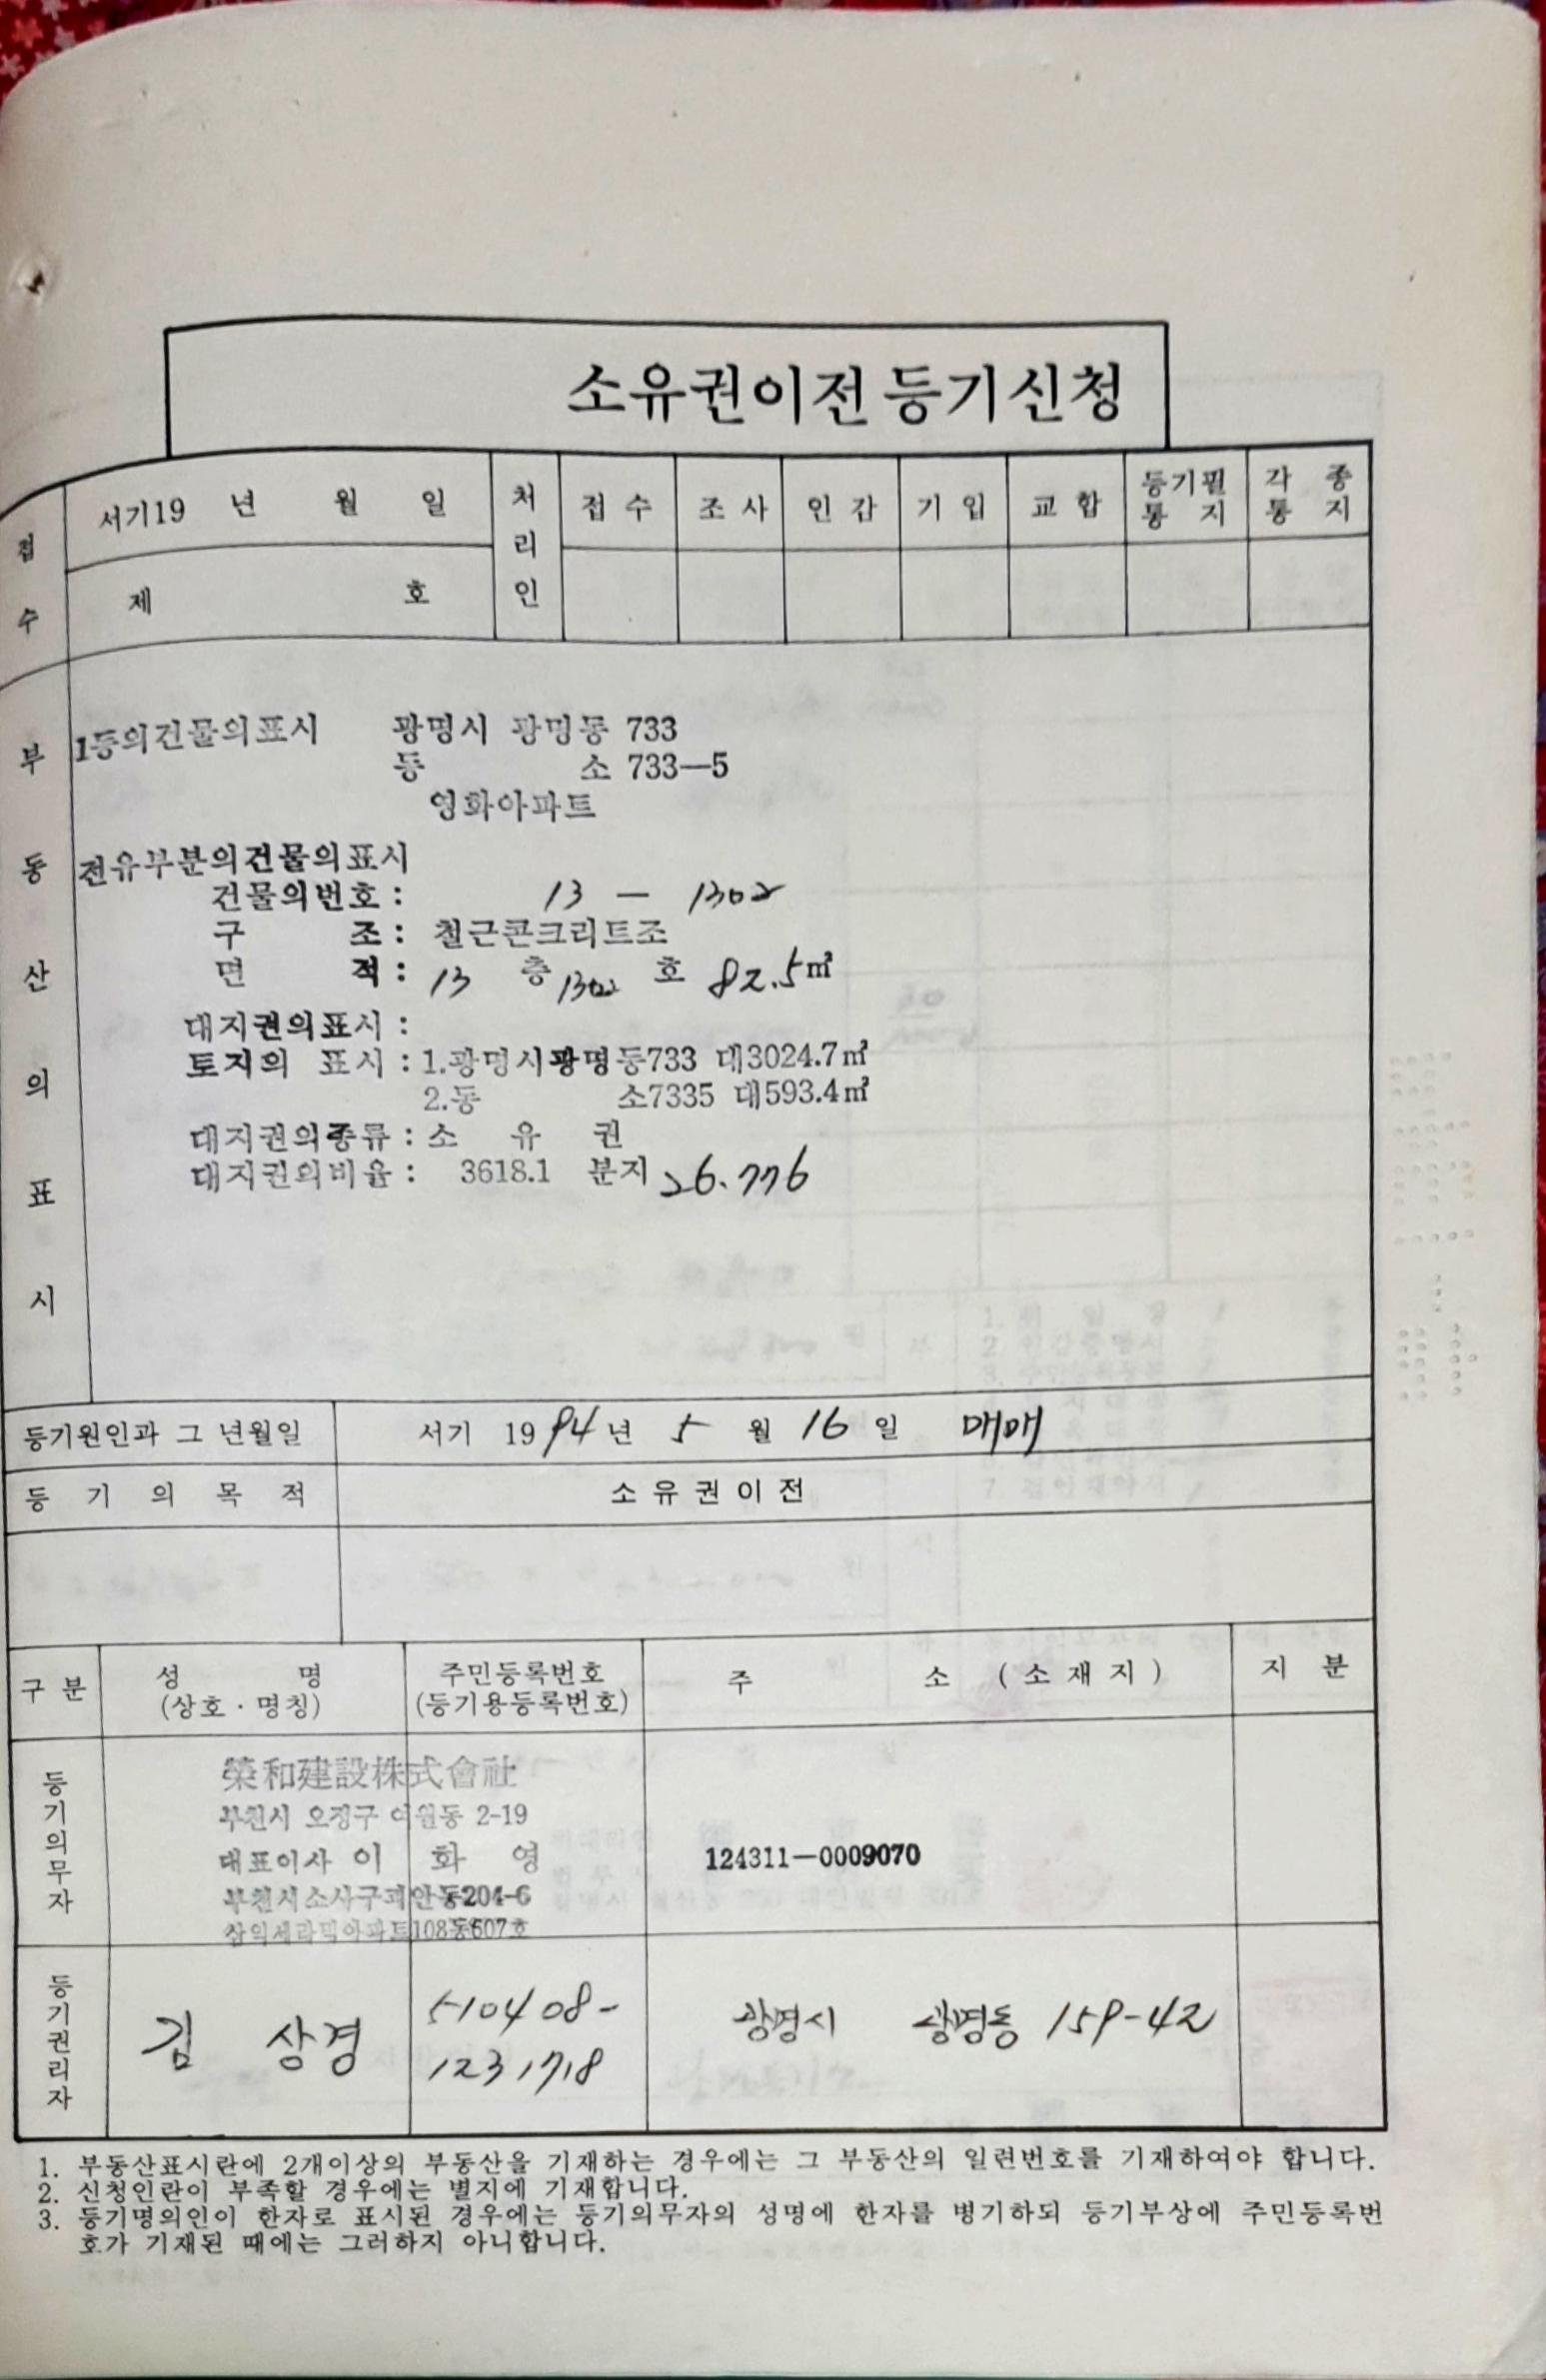 소유권이전등기신청
접수
서기19 년 월 일
제 호
처리인
접수 조사 인감 기입 교합 등기필통지 각종통지
부동산의표시
1동의건물의표시 광명시 광명동 733
동 소 733—5
영화아파트
전유부분의건물의표시
건물의번호 : 13 — 1302
구 조 : 철근콘크리트조
면 적 : 13 층 1302 호 82.5㎡
대지권의표시 :
토지의 표시 : 1.광명시광명동733 대3024.7㎡
2.동 소7335 대593.4㎡
대지권의종류 : 소 유 권
대지권의비율 : 3618.1 분지 26.776
등기원인과 그 년월일 서기 1994년 5월 16일 매매
등기의목적 소유권이전
구분 성명 (상호·명칭) 주민등록번호 (등기용등록번호) 주 소 (소재지) 지분
등기의무자
榮和建設株式會社
부천시 오정구 여월동 2-19
대표이사 이 화 영
부천시소사구괴안동204-6
삼익세라믹아파트108동607호
124311—0009070
등기권리자
김 상경
510408-
1231718
광명시 광명동 159-42
1. 부동산표시란에 2개이상의 부동산을 기재하는 경우에는 그 부동산의 일련번호를 기재하여야 합니다.
2. 신청인란이 부족할 경우에는 별지에 기재합니다.
3. 등기명의인이 한자로 표시된 경우에는 등기의무자의 성명에 한자를 병기하되 등기부상에 주민등록번
호가 기재된 때에는 그러하지 아니합니다.